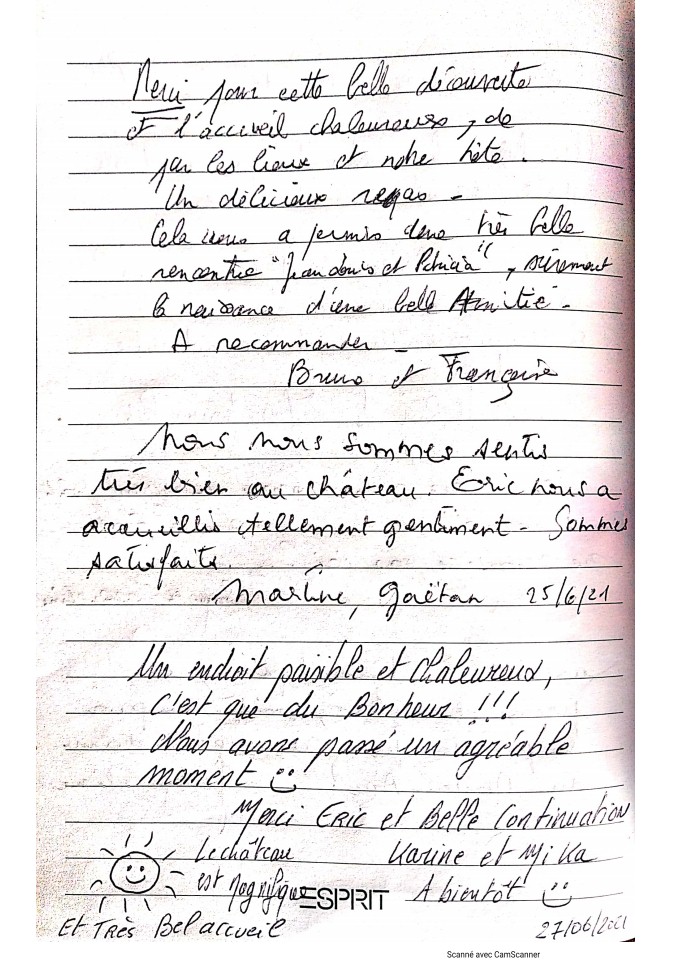 Merci pour cette belle découverte
et l'accueil chaleureuse, de
par les lieux et notre hôte.
Un délicieux repas -
Cela nous a permis d'une très belle
rencontre "Jean Louis et Patricia", sûrement
la naissance d'une belle Amitié -
A recommander -
Bruno et Françoise
Nous nous sommes sentis
très bien au château. Eric nous a
accueillis tellement gentiment - Sommes
satisfaits.
Martine, Gaëtan 25/6/21
Un endroit paisible et chaleureux,
C'est que du Bonheur !!!
Nous avons passé un agréable
moment
Merci Eric et Belle Continuation
Le château Karine et Mika
est Magnifique ESPRIT A bientôt
Et Très Bel accueil 27/06/2021
Scanné avec CamScanner